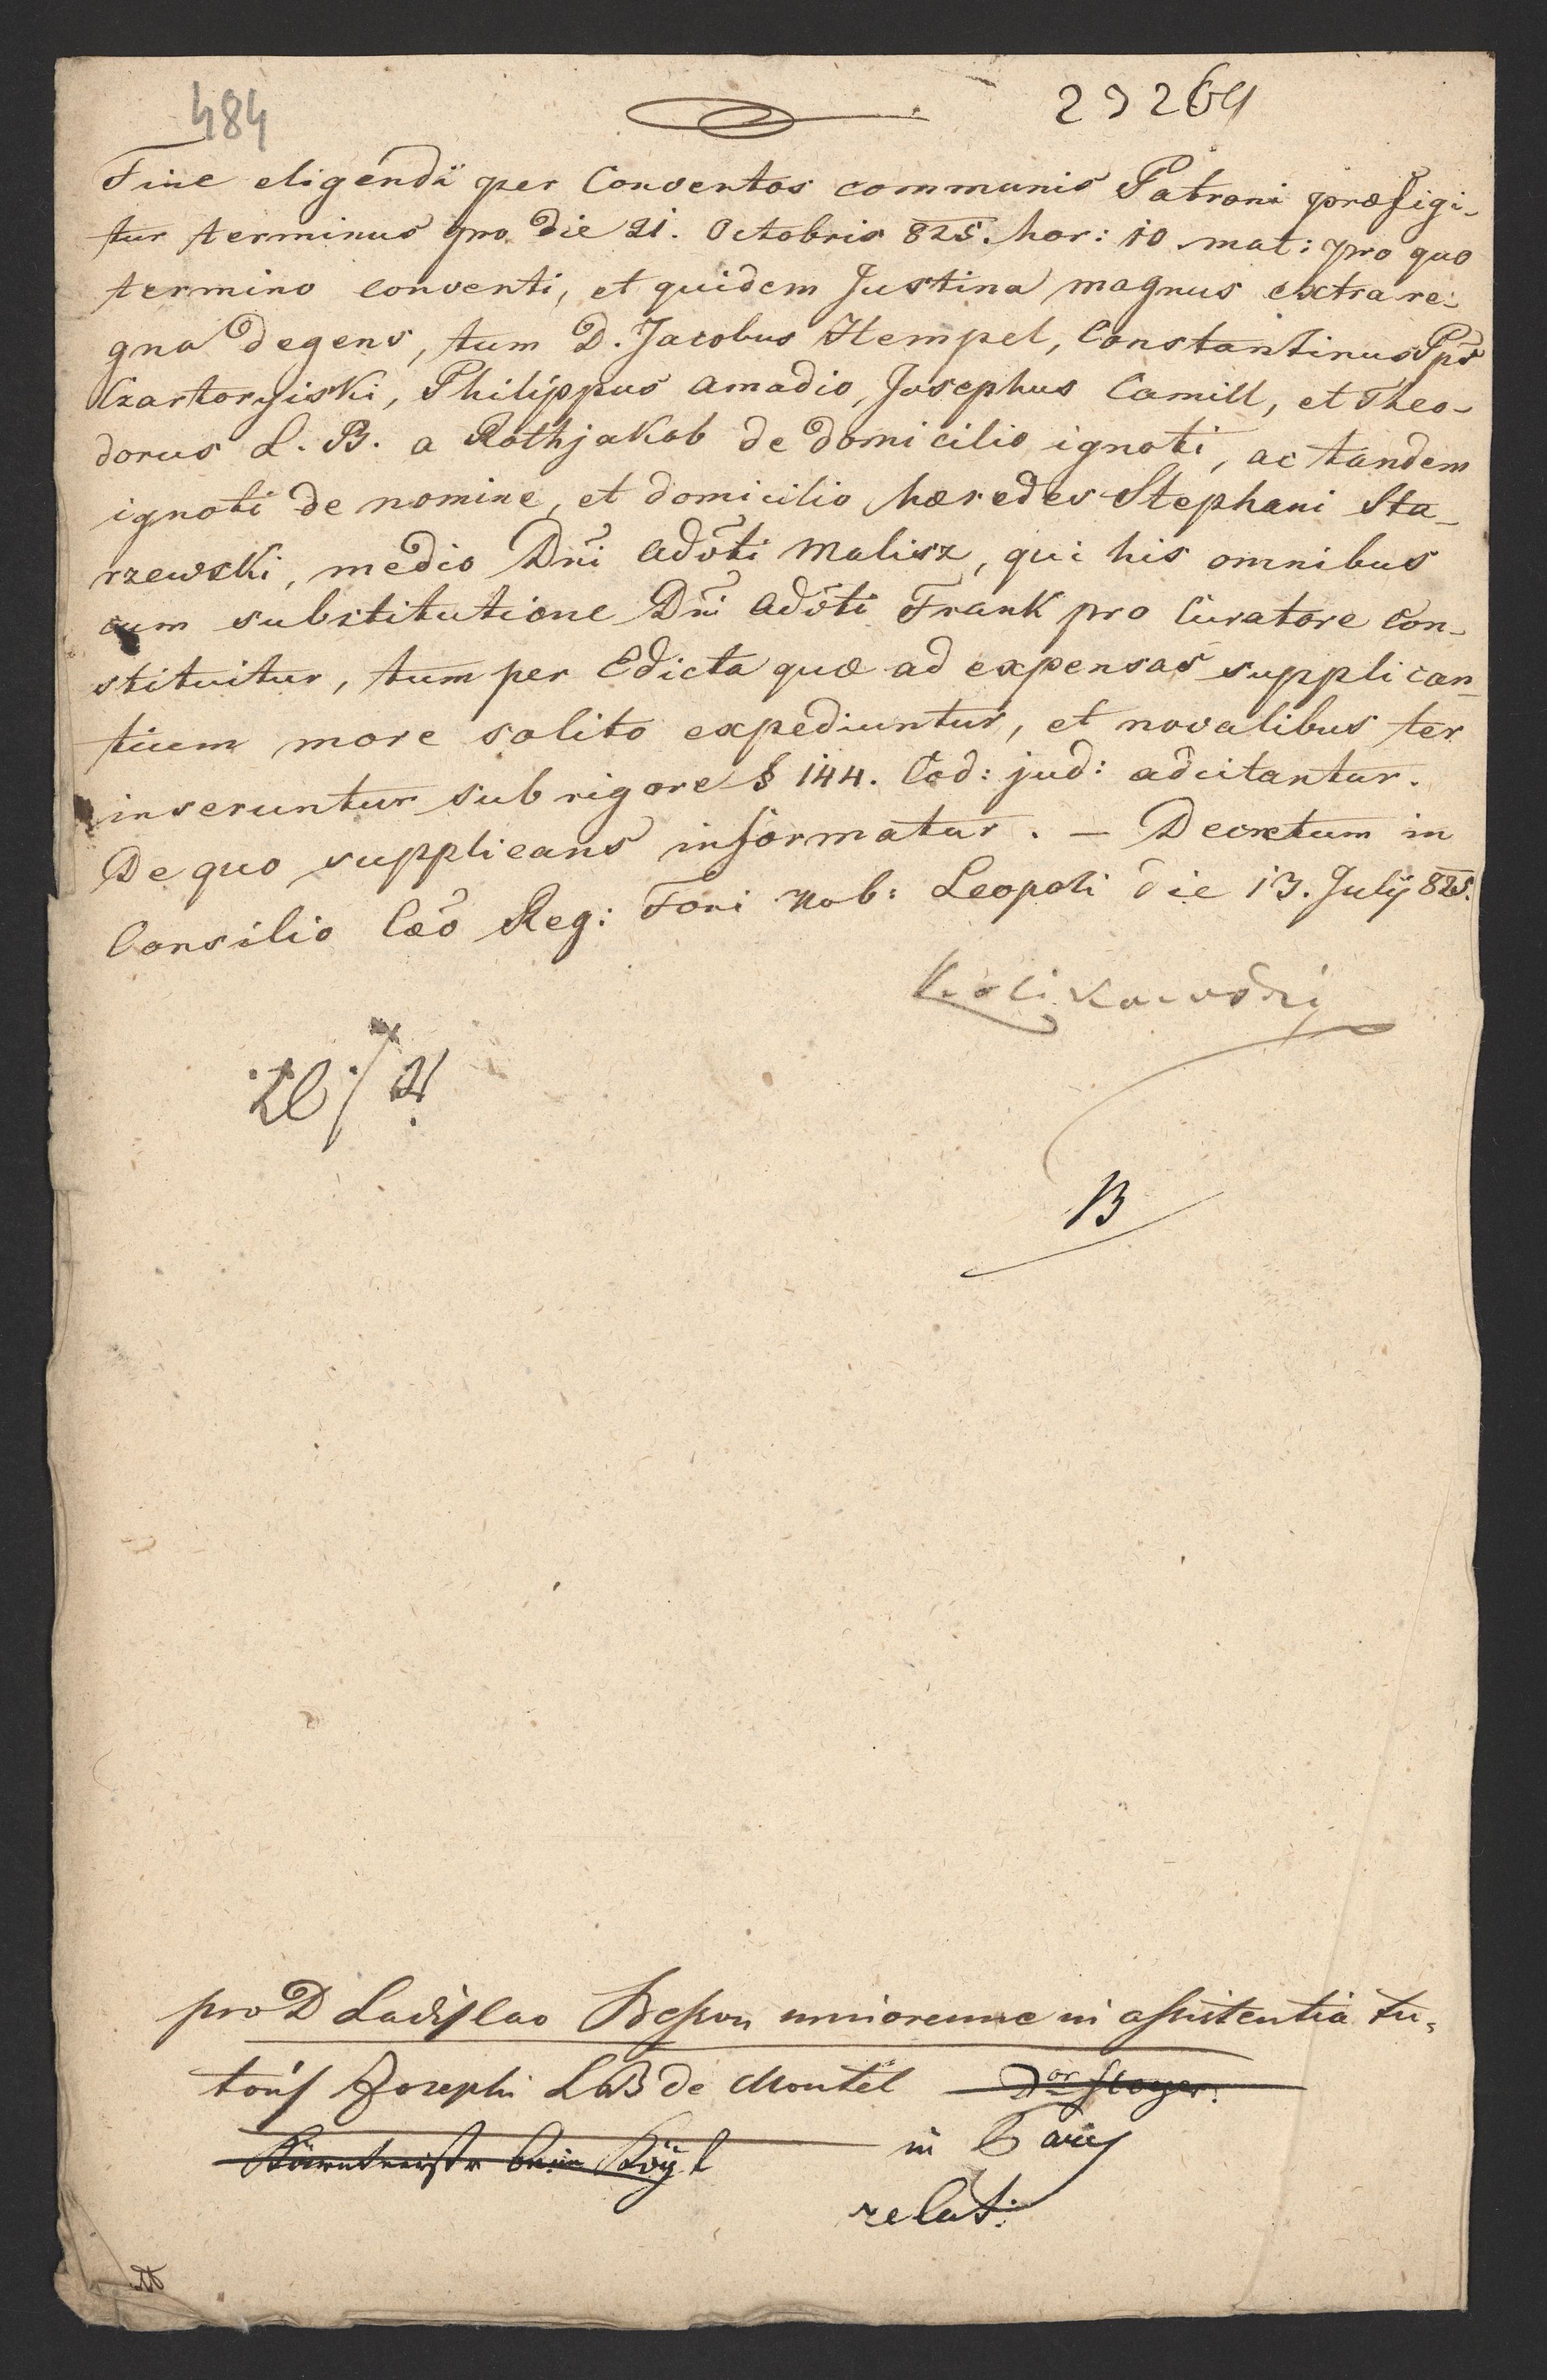 484
23264
Fine eligendi per Conventos communis Patroni præfigi-
tur terminus pro die 21. Octobris 825. hor: 10. mat: pro quo
termino conventi, et quidem Justina Magnus extra re-
gna degens, tum D. Jacobus Hempel, Constantinus Pps
Czartoryiski, Philippus Amadio, Josephus Camill, et Theo-
dorus L. B. a Rothjakob de domicilio ignoti, ac tandem
ignoti de nomine, et domicilio hæredes Stephani Sta-
rzewski, medio Dni Advti Malisz, qui his omnibus
cum substitutione Dni Advti Frank pro Curatore con-
stituitur, tum per Edicta quæ ad expensas supplican-
tium more solito expediuntur, et novalibus ter
inseruntur sub rigore § 144. Cod: jud: adcitantur.
De quo supplicans informatur. — Decretum in
Consilio Cæo Reg: Fori Nob: Leopoli die 13. July 825.
B
pro D Ladislao Beßon minorenne in assistentia tu-
toris Josephi LB de Montel
in
relat: